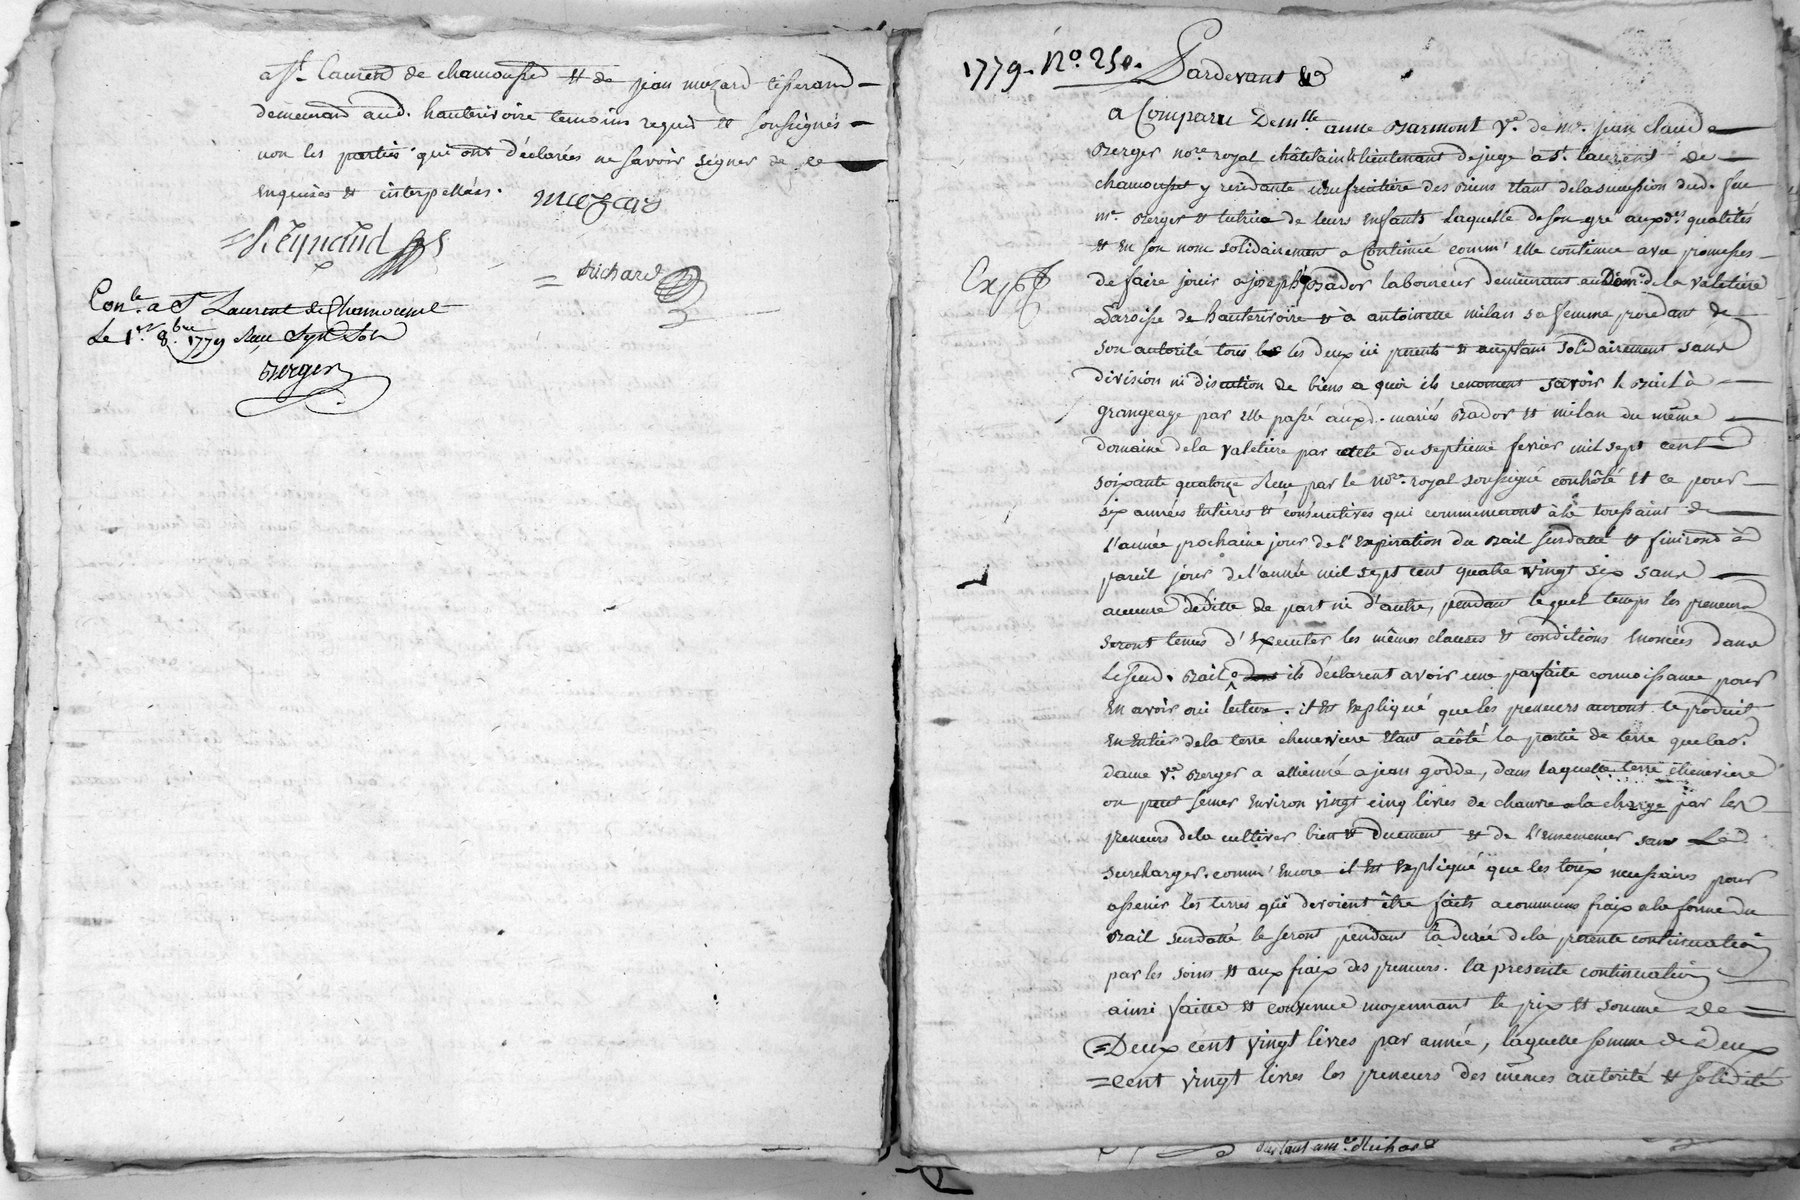 a St. Laurend de chamousset et de jean mozard tisserand
demeurand aud. hauterivoire temoins requis et soussignés
non les parties qui ont déclarées ne savoir signer de ce
enquises et interpellées.
mozard
Reynaud
Richard
Conlé. a St Laurent de Chamousset
Le 1er 8bre 1779 Recu Sept Sols
Berger
1779. No. 250.
Pardevant &
a Comparu Demlle. anne Barmont Ve. de me. jean claude
Berger nore. royal châtelain & lieutenant de juge à St. laurent de
chamousset y residante usufruitière des Biens etant de la succession dud. feu
me. Berger et tutrice de leurs enfants laquelle de son gré auxd. qualités
et en son nom solidairement a Continué comm' elle continue avec promesses
Exp
de faire jouir a joseph Bador laboureur demeurant au Dom. de la valetiere
Paroisse de hauterivoire et à antoinette milan sa femme procedant de
son autorité tous les deux ici presents et acceptans solidairement sans
division ni discution de biens a quoi ils renoncent savoir le Bail à
grangeage par elle passé auxd. mariés Bador et milan du même
domaine de la valetiere par acte du septieme fevrier mil sept cent
soixante quatorze Recu par le nore. royal soussigné contrôlé et ce pour
six années entieres et consecutives qui commenceront à la toussaint de
l'année prochaine jour de l'expiration du Bail susdatté et finirond à
pareil jour de l'année mil sept cent quatre vingt six sans
aucune déditte de part ni d'autre, pendant lequel temps les preneurs
seront tenus d'executer les mêmes clauses et conditions enoncées dans
Lesusd. Bail ils déclarent avoir une parfaite connoissance pour
en avoir oui lecture. il est expliqué que les preneurs auront le produit
en entier de la terre cheneviere etant a côté la partie de terre que lad.
dame ve. Berger a alliénné a jean godde, dans laquelle terre cheneviere
on peut semer environ vingt cinq livres de chanvre a la charge par les
preneurs de la cultiver bien et duement et de l'ensemencer sans La
surcharger. comm' encore il est expliqué que les toux necessaires pour
assenir les terres qui devoient être faits a communs fraix a la forme du
Bail susdatté le seront pendant la durée de la presente continuation
par les soins et aux fraix des preneurs. la presente continuation
ainsi faitte et convenue moyennant le prix et somme de
Deux cent vingt livres par année, laquelle somme de Deux
cent vingt livres les preneurs des mêmes autorité et solidité